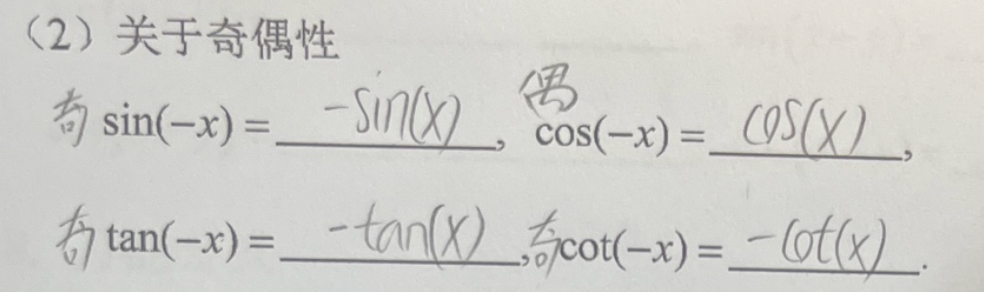 （2）关于奇偶性
奇 sin(−x) = -sin(x), 偶 cos(−x) = cos(x),
奇 tan(−x) = -tan(x), 奇 cot(−x) = -cot(x).